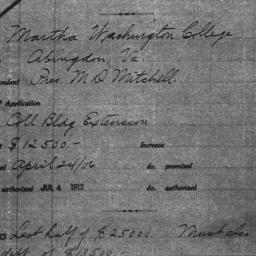 Martha Washington College
Abingdon, Va.
Pres. M D Mitchell.
Application
Coll Bldg Extension
$12500.- Increase
April 24/06 do. promised
authorized JUL 4 1912 do. authorized
Last half of $25000. Must
of $12500.-